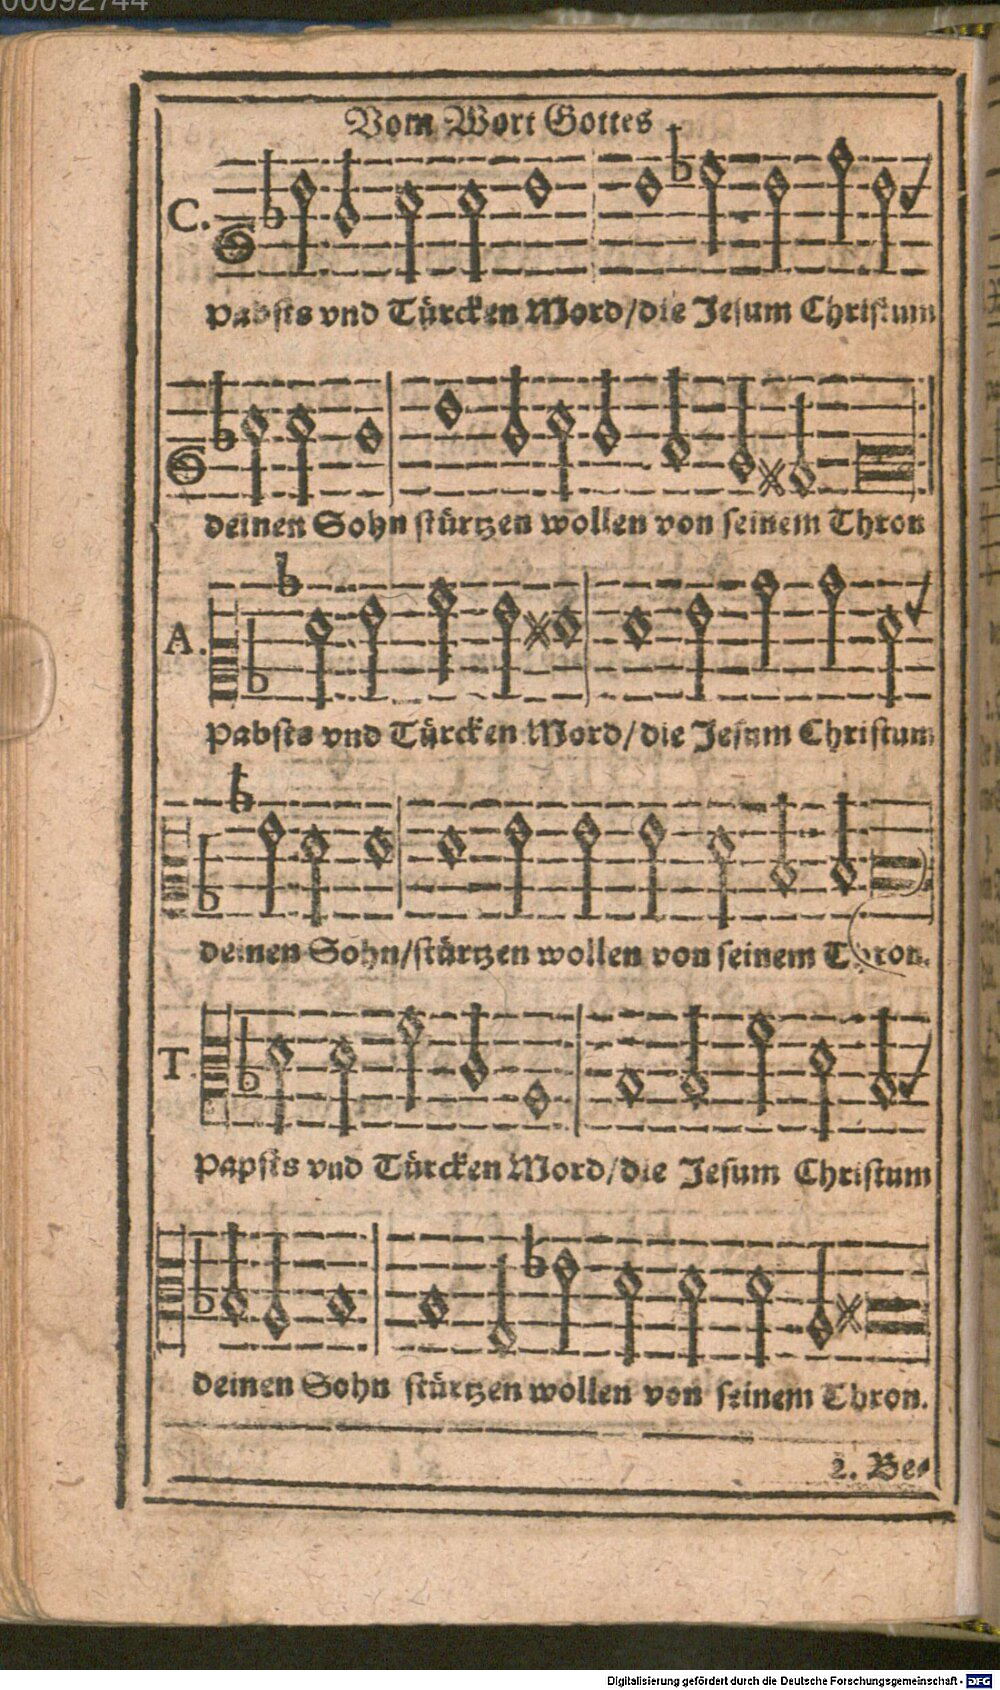 00092744
Vom Wort Gottes
C.
Pabsts vnd Türcken Mord/die Jesum Christum
deinen Sohn stürtzen wollen von seinem Thron
A.
Pabsts vnd Türcken Mord/die Jesum Christum
deinen Sohn/stürtzen wollen von seinem Thron.
T.
Papsts vnd Türcken Mord/die Jesum Christum
deinen Sohn stürtzen wollen von seinem Thron.
2. Be⸗
Digitalisierung gefördert durch die Deutsche Forschungsgemeinschaft - DFG